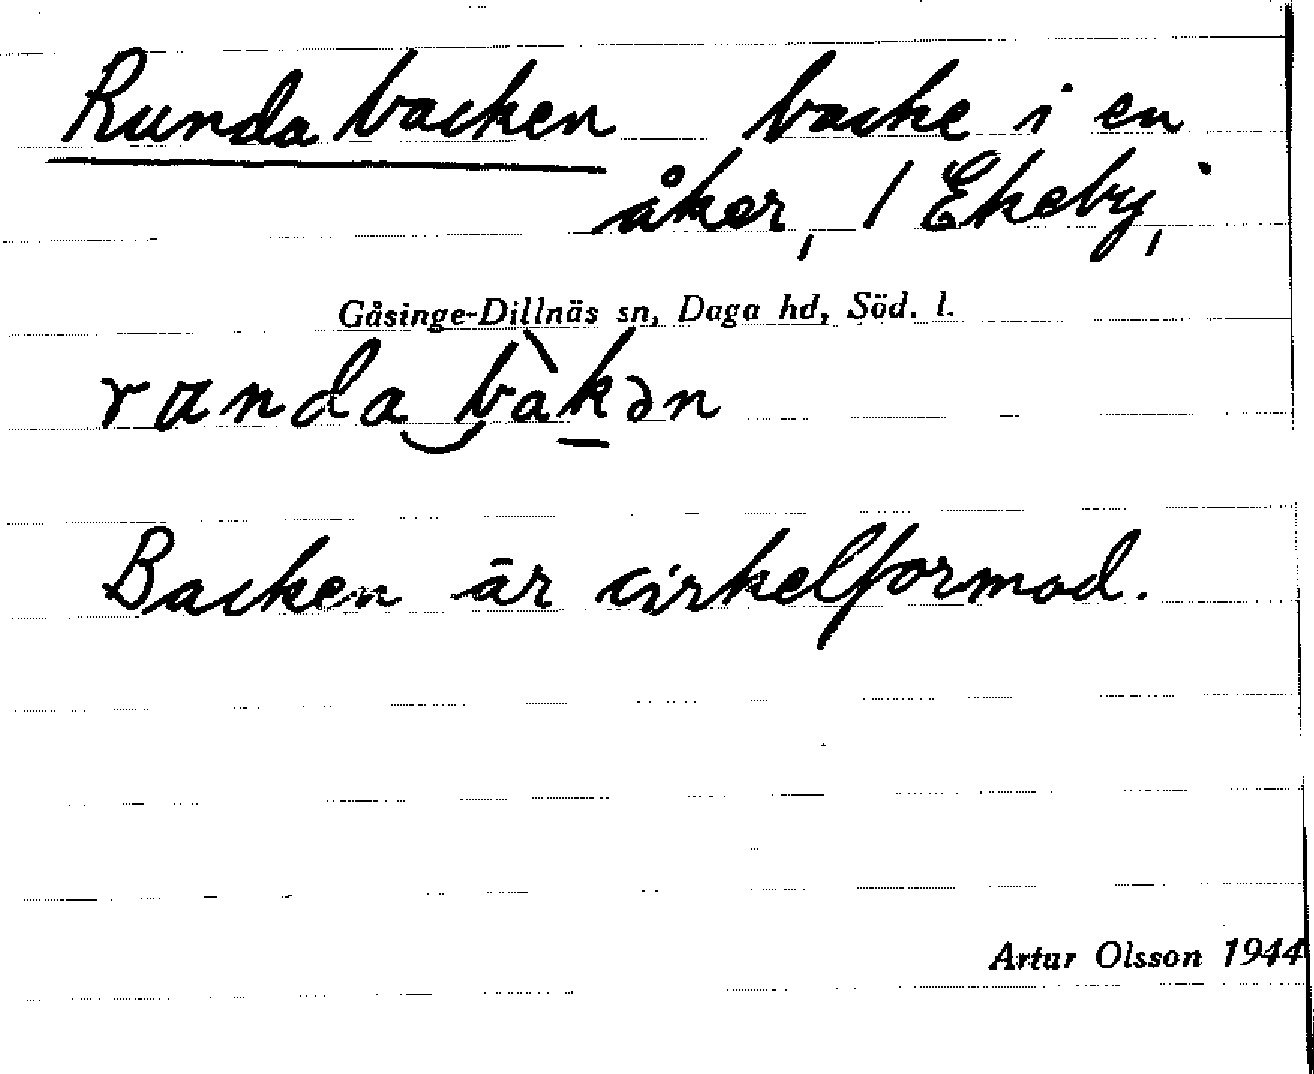 Runda backen backe i en
åker, 1 Ekeby,
Gåsinge-Dillnäs sn, Daga hd, Söd. l.
runda‿bàk̲ən
Backen är cirkelformad.
Artur Olsson 1944